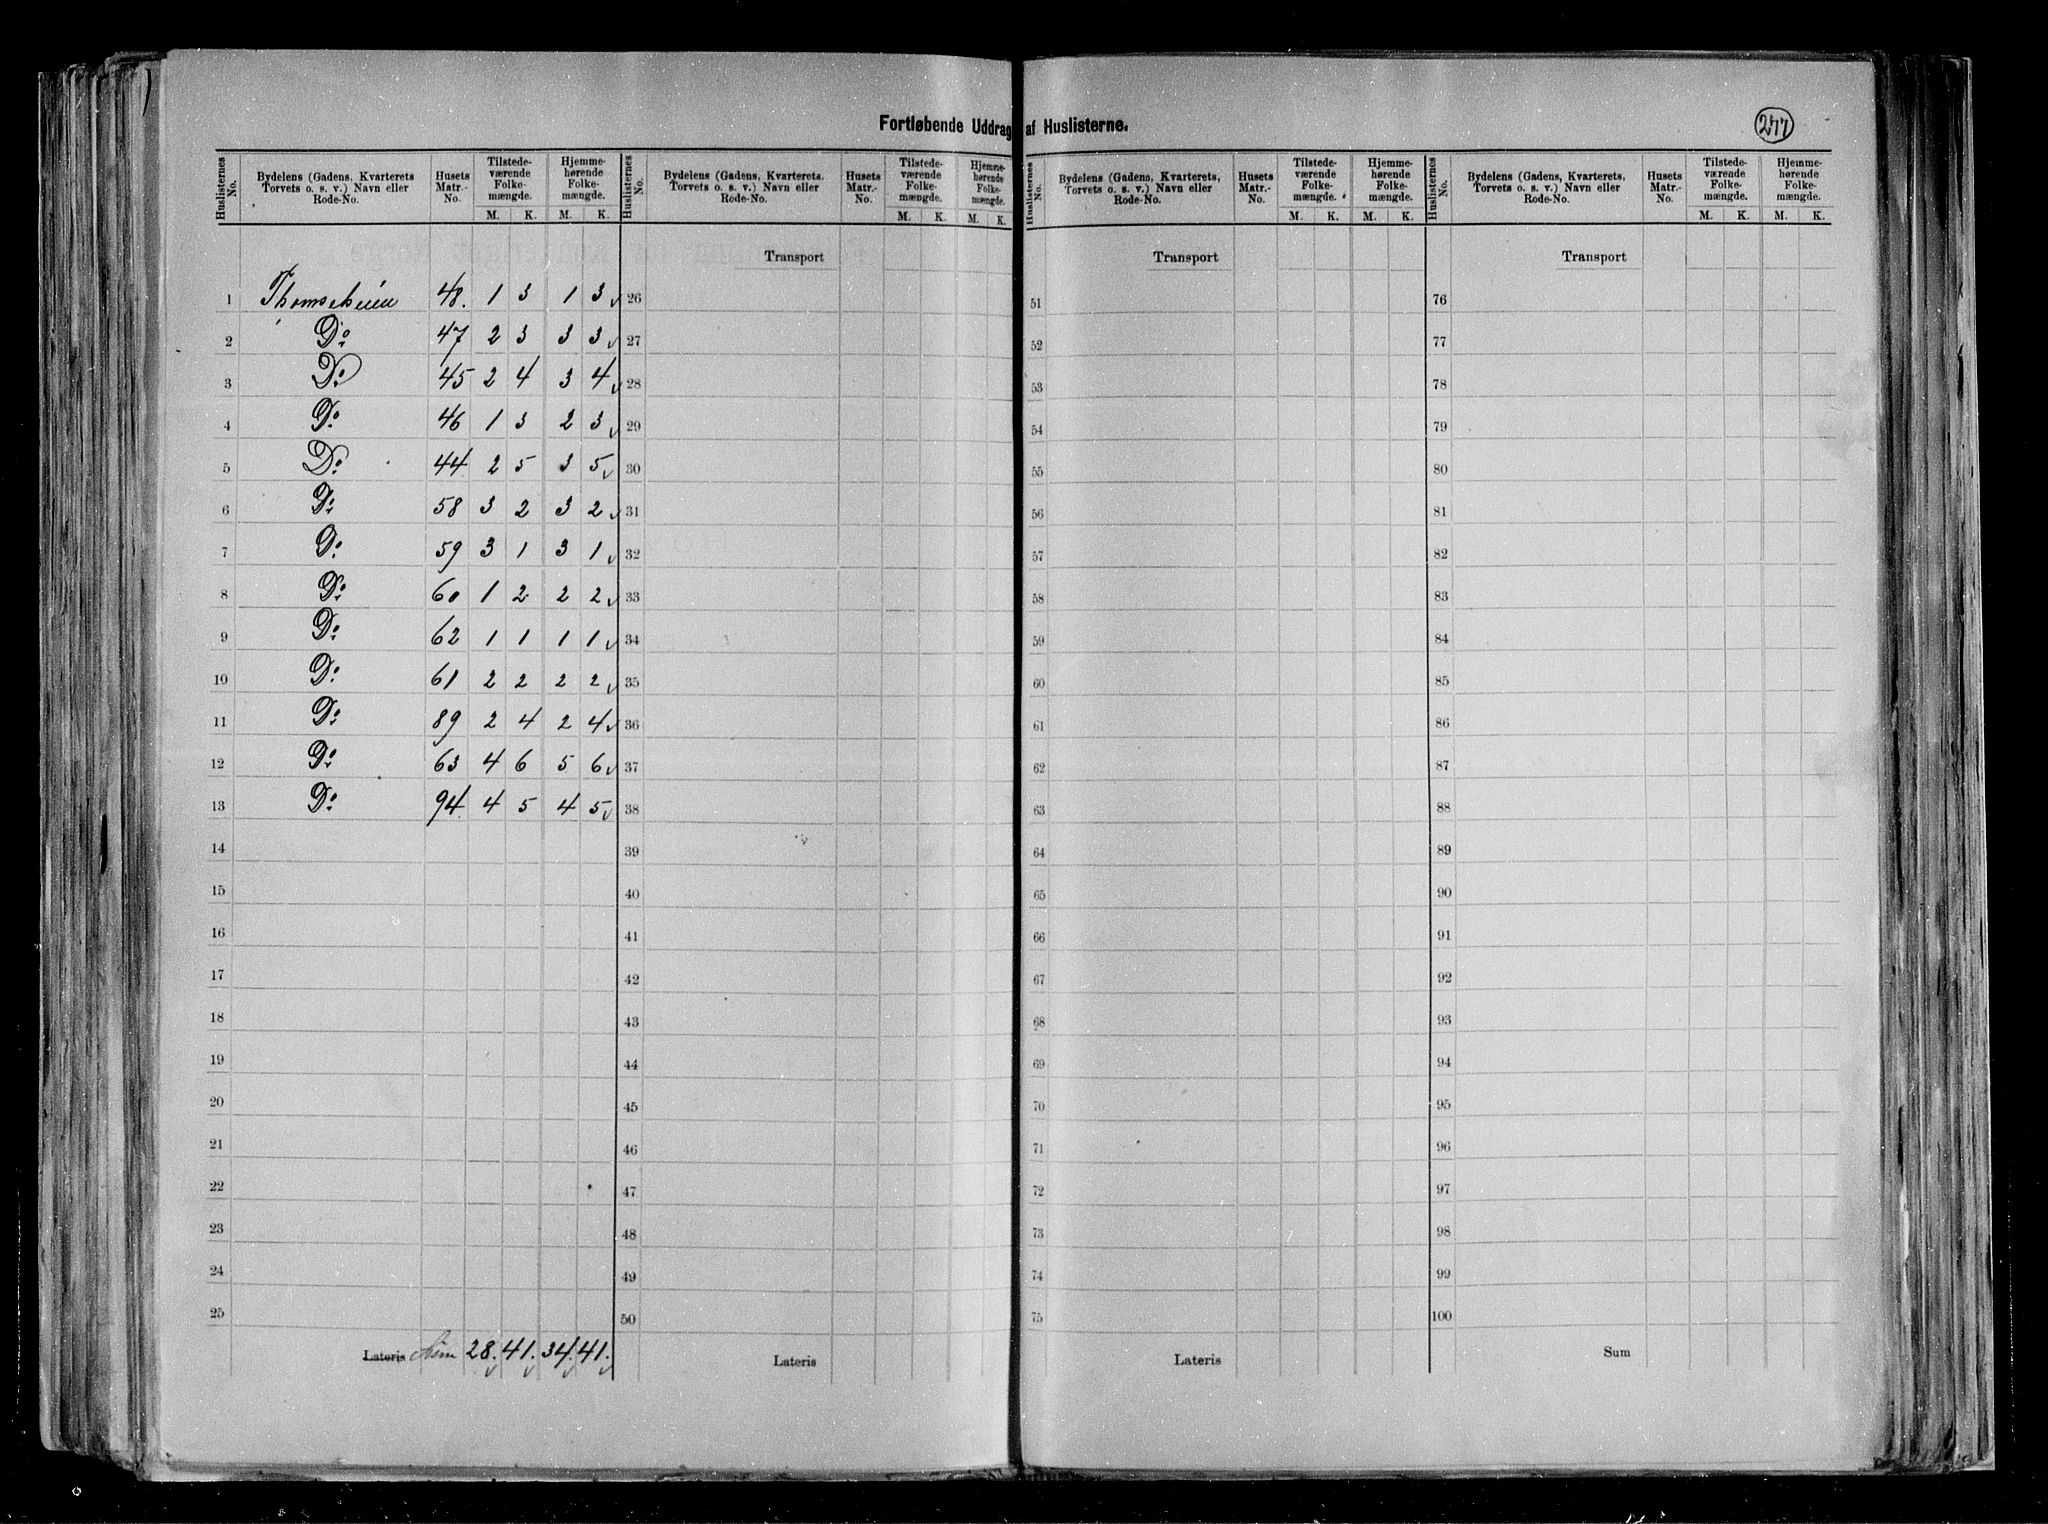 Fortløbende Uddrag af Huslisterne.
277
Huslisternes No. | Bydelens (Gadens, Kvarterets, Torvets o. s. v.) Navn eller Rode-No. | Husets Matr.-No. | Tilstedeværende Folkemængde. M. K. | Hjemmehørende Folkemængde. M. K.
1 48. 1 3 1 3
2 Do 47 2 3 3 3
3 Do 45 2 4 3 4
4 Do 46 1 3 2 3
5 Do 44 2 5 3 5
6 Do 58 3 2 3 2
7 Do 59 3 1 3 1
8 Do 60 1 2 2 2
9 Do 62 1 1 1 1
10 Do 61 2 2 2 2
11 Do 89 2 4 2 4
12 Do 63 4 6 5 6
13 Do 94. 4 5 4 5
14
15
16
17
18
19
20
21
22
23
24
25
Lateris 28. 41. 34. 41.
Huslisternes No. | Bydelens (Gadens, Kvarterets, Torvets o. s. v.) Navn eller Rode-No. | Husets Matr.-No. | Tilstedeværende Folkemængde. M. K. | Hjemmehørende Folkemængde. M. K.
Transport
26
27
28
29
30
31
32
33
34
35
36
37
38
39
40
41
42
43
44
45
46
47
48
49
50
Lateris
Huslisternes No. | Bydelens (Gadens, Kvarterets, Torvets o. s. v.) Navn eller Rode-No. | Husets Matr.-No. | Tilstedeværende Folkemængde. M. K. | Hjemmehørende Folkemængde. M. K.
Transport
51
52
53
54
55
56
57
58
59
60
61
62
63
64
65
66
67
68
69
70
71
72
73
74
75
Lateris
Huslisternes No. | Bydelens (Gadens, Kvarterets, Torvets o. s. v.) Navn eller Rode-No. | Husets Matr.-No. | Tilstedeværende Folkemængde. M. K. | Hjemmehørende Folkemængde. M. K.
Transport
76
77
78
79
80
81
82
83
84
85
86
87
88
89
90
91
92
93
94
95
96
97
98
99
100
Sum